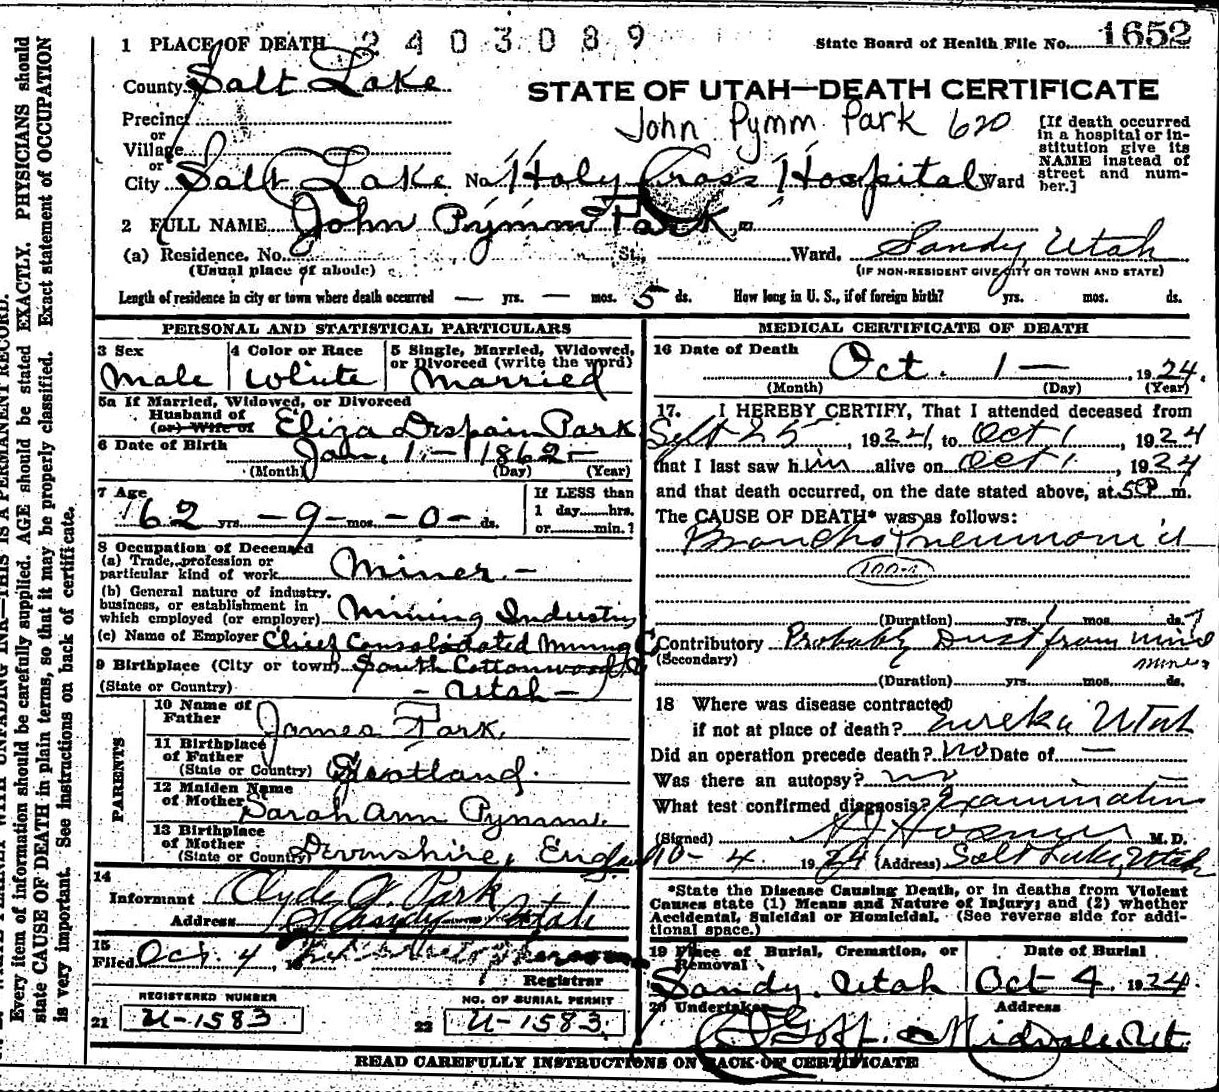 1 PLACE OF DEATH 2403089
State Board of Health File No. 1652
County Salt Lake
STATE OF UTAH—DEATH CERTIFICATE
Precinct
or
Village
or
City Salt Lake No. Holy Cross Hospital Ward
John Pymm Park 620
[If death occurred
in a hospital or in-
stitution give its
NAME instead of
street and num-
ber.]
2 FULL NAME John Pymm Park
(a) Residence. No. St., Ward. Sandy, Utah
(Usual place of abode) (IF NON-RESIDENT GIVE CITY OR TOWN AND STATE)
Length of residence in city or town where death occurred — yrs. — mos. 5 ds. How long in U. S., if of foreign birth? yrs. mos. ds.
PERSONAL AND STATISTICAL PARTICULARS
3 Sex
Male
4 Color or Race
White
5 Single, Married, Widowed,
or Divorced (write the word)
Married
5a If Married, Widowed, or Divorced
Husband of
(or) Wife of Eliza Despain Park
6 Date of Birth Jan. 1 — 1862 —
(Month) (Day) (Year)
7 Age
62 yrs. — 9 — mos. — 0 — ds.
If LESS than
1 day......hrs.
or......min.?
8 Occupation of Deceased
(a) Trade, profession or
particular kind of work Miner —
(b) General nature of industry,
business, or establishment in
which employed (or employer) Mining Industry
(c) Name of Employer Chief Consolodated Mining C
9 Birthplace (City or town) South Cottonwood
(State or Country) — Utah —
PARENTS
10 Name of
Father James Park.
11 Birthplace
of Father
(State or Country) Scotland.
12 Maiden Name
of Mother Sarah Ann Pymm.
13 Birthplace
of Mother
(State or Country) Devonshire, Eng
14
Informant Clyde J. Park
Address Sandy — Utah
15
Filed Oct. 4, 19
Registrar
REGISTERED NUMBER
21 U-1583
NO. OF BURIAL PERMIT
22 U-1583.
MEDICAL CERTIFICATE OF DEATH
16 Date of Death Oct. 1 — , 1924.
(Month) (Day) (Year)
17. I HEREBY CERTIFY, That I attended deceased from
Sept 25, 1924, to Oct 1, 1924
that I last saw him alive on Oct 1, 1924
and that death occurred, on the date stated above, at 5 P m.
The CAUSE OF DEATH* was as follows:
Broncho Pneumonia
100-1
(Duration) yrs. mos. 7 ds.
Contributory Probably Dust from mine
(Secondary)
(Duration) yrs. mos. ds.
18 Where was disease contracted
if not at place of death? Eureka Utah
Did an operation precede death? no Date of —
Was there an autopsy? no
What test confirmed diagnosis? Examination
(Signed) M. D.
10-4 1924 (Address) Salt Lake, Utah
*State the Disease Causing Death, or in deaths from Violent
Causes state (1) Means and Nature of Injury; and (2) whether
Accidental, Suicidal or Homicidal. (See reverse side for addi-
tional space.)
19 Place of Burial, Cremation, or
Removal
Sandy. Utah
Date of Burial
Oct 4 1924.
20 Undertaker Goff.
Address
Midvale, Ut.
READ CAREFULLY INSTRUCTIONS ON BACK OF CERTIFICATE
THIS IS A PERMANENT RECORD.
Every item of information should be carefully supplied. AGE should be stated EXACTLY. PHYSICIANS should
state CAUSE OF DEATH in plain terms, so that it may be properly classified. Exact statement of OCCUPATION
is very important. See instructions on back of certificate.